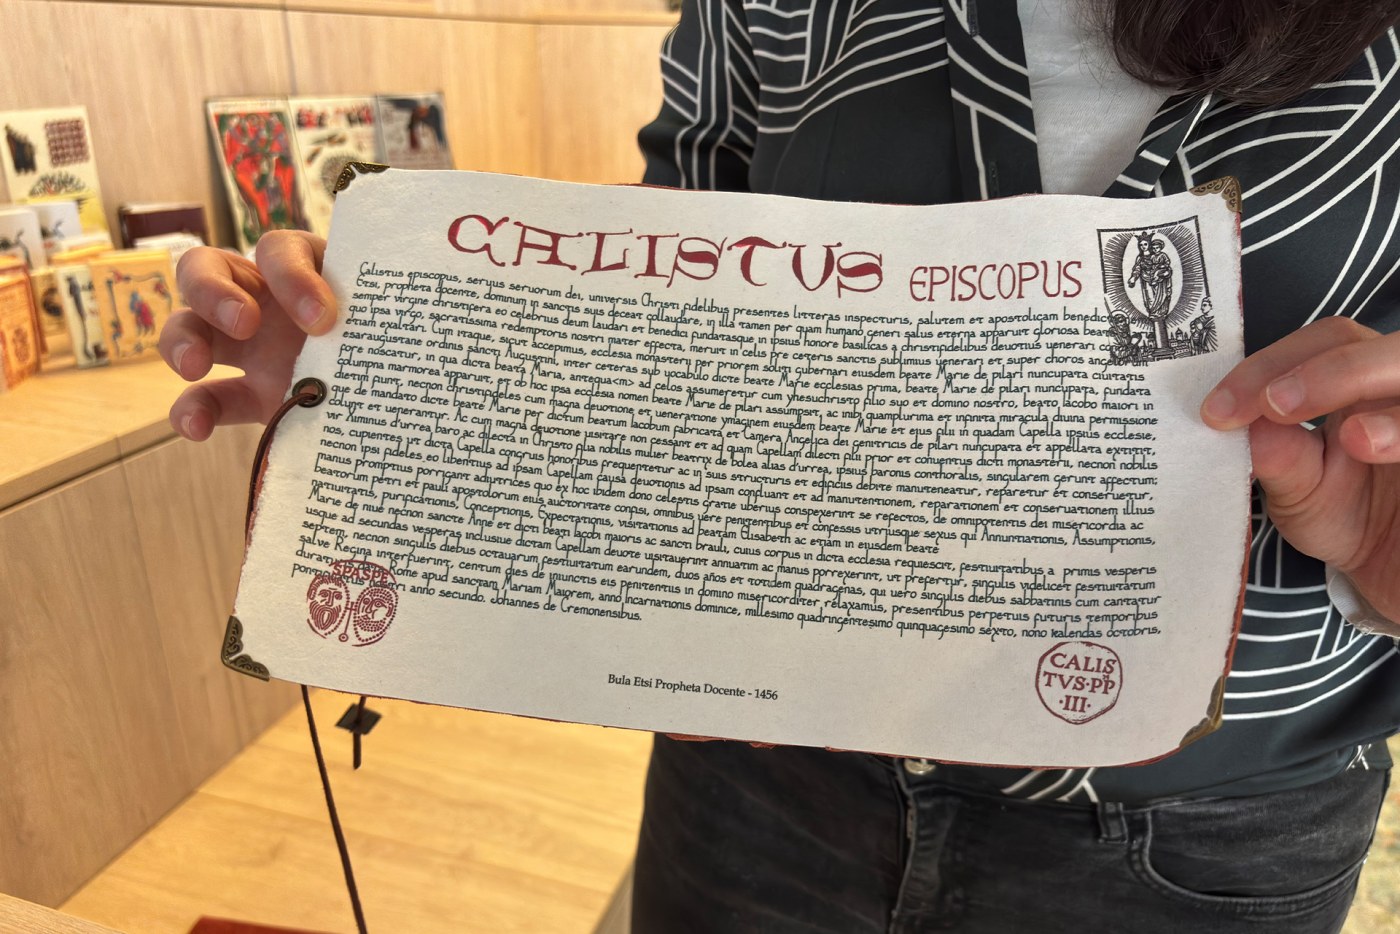 CALISTUS EPISCOPUS
Calistus episcopus, servus servorum dei, universis Christi fidelibus presentes litteras inspecturis, salutem et apostolicam
Etsi, propheta docente, dominum in sanctis suis deceat collaudare, in illa tamen per quam humano generi salus eterna apparuit gloriosa
semper virgine christifera eo celebrius deum laudari et benedici fundatasque in ipsius honore basilicas a christifidelibus devotius venerari
quo ipsa virgo, sacratissima redemptoris nostri mater effecta, meruit in celis pre ceteris sanctis sublimius venerari et super choros
etiam exaltari. Cum itaque, sicut accepimus, ecclesia monasterii per priorem soliti gubernari eiusdem beate Marie de pilari nuncupata civitatis
esaraugustane ordinis sancti Augustini, inter ceteras sub vocabulo dicte beate Marie ecclesias prima, beate Marie de pilari nuncupata, fundata
fore noscatur, in qua dicta beata Maria, antequa<m> ad celos assumeretur cum yhesuchristo filio suo et domino nostro, beato Iacobo maiori in
columpna marmorea apparuit, et ob hoc ipsa ecclesia nomen beate Marie de pilari assumpsit, ac inibi quamplurima et infinita miracula divina permissione
dietim fiunt, necnon christifideles cum magna devotione et veneratione ymaginem eiusdem beate Marie et eius filii in quadam Capella ipsius ecclesie,
que de mandato dicte beate Marie per dictum beatum Iacobum fabricata et Camera Angelica dei genitricis de pilari nuncupata et appellata extitit,
colunt et venerantur. Ac cum magna devotione visitare non cessant et ad quam Capellam dilecti filii prior et conventus dicti monasterii, necnon nobilis
vir Ximinus d'urrea baro ac dilecta in Christo filia nobilis mulier beatrix de bolea alias d'urrea, ipsius baronis conthoralis, singularem gerunt affectum;
nos, cupientes ut dicta Capella congruis honoribus frequentetur ac in suis structuris et edificiis debite manuteneatur, reparetur et conservetur,
necnon ipsi fideles eo libentius ad ipsam Capellam causa devotionis ad ipsam confluant et ad manutentionem, reparationem et conservationem illius
manus promptius porrigant adiutrices quo ex hoc ibidem dono celestis gratie uberius conspexerint se refectos, de omnipotentis dei misericordia ac
beatorum petri et pauli apostolorum eius auctoritate confisi, omnibus vere penitentibus et confessis utriusque sexus qui Annuntiationis, Assumptionis,
nativitatis, purificationis, Conceptionis, Expectationis, visitationis ad beatam Elisabeth ac etiam in eiusdem beate
Marie de nive necnon sancte Anne et dicti beati Iacobi maioris ac sancti brauli, cuius corpus in dicta ecclesia requiescit, festivitatibus a primis vesperis
usque ad secundas vesperas inclusive dictam Capellam devote visitaverint annuatim ac manus porrexerint, ut prefertur, singulis videlicet festivitatum
septem, necnon singulis diebus octavarum festivitatum earundem, duos años et totidem quadragenas, qui vero singulis diebus sabbatinis cum cantatur
salve Regina interfuerint, centum dies de iniunctis eis penitentiis in domino misericorditer relaxamus, presentibus perpetuis futuris temporibus
Rome apud sanctam Mariam Maiorem, anno Incarnationis dominice, millesimo quadringentesimo quinquagesimo sexto, nono kalendas octobris,
nostri anno secundo. Iohannes de Cremonensibus.
SPASPE
Bula Etsi Propheta Docente - 1456
CALIS
TVS·PP
·III·